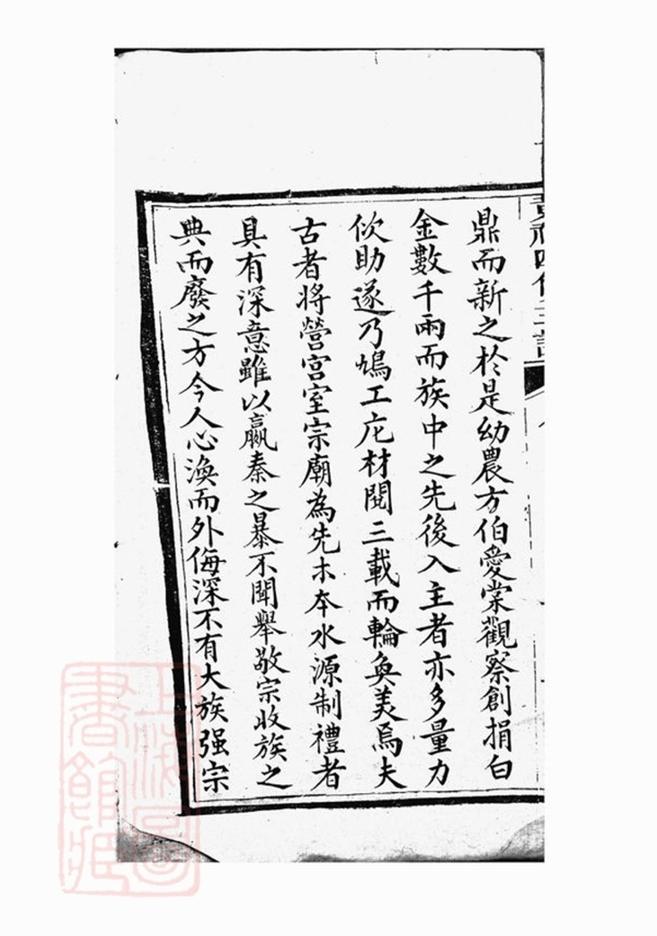 鼎而新之於是幼農方伯愛棠觀察創捐白
金數千兩而族中之先後入主者亦多量力
佽助遂乃鳩工庀材閱三載而輪奐美焉夫
古者將營宮室宗廟為先木本水源制禮者
具有深意雖以嬴秦之暴不聞舉敬宗收族之
典而廢之方今人心渙而外侮深不有大族强宗
上海圖
書館藏